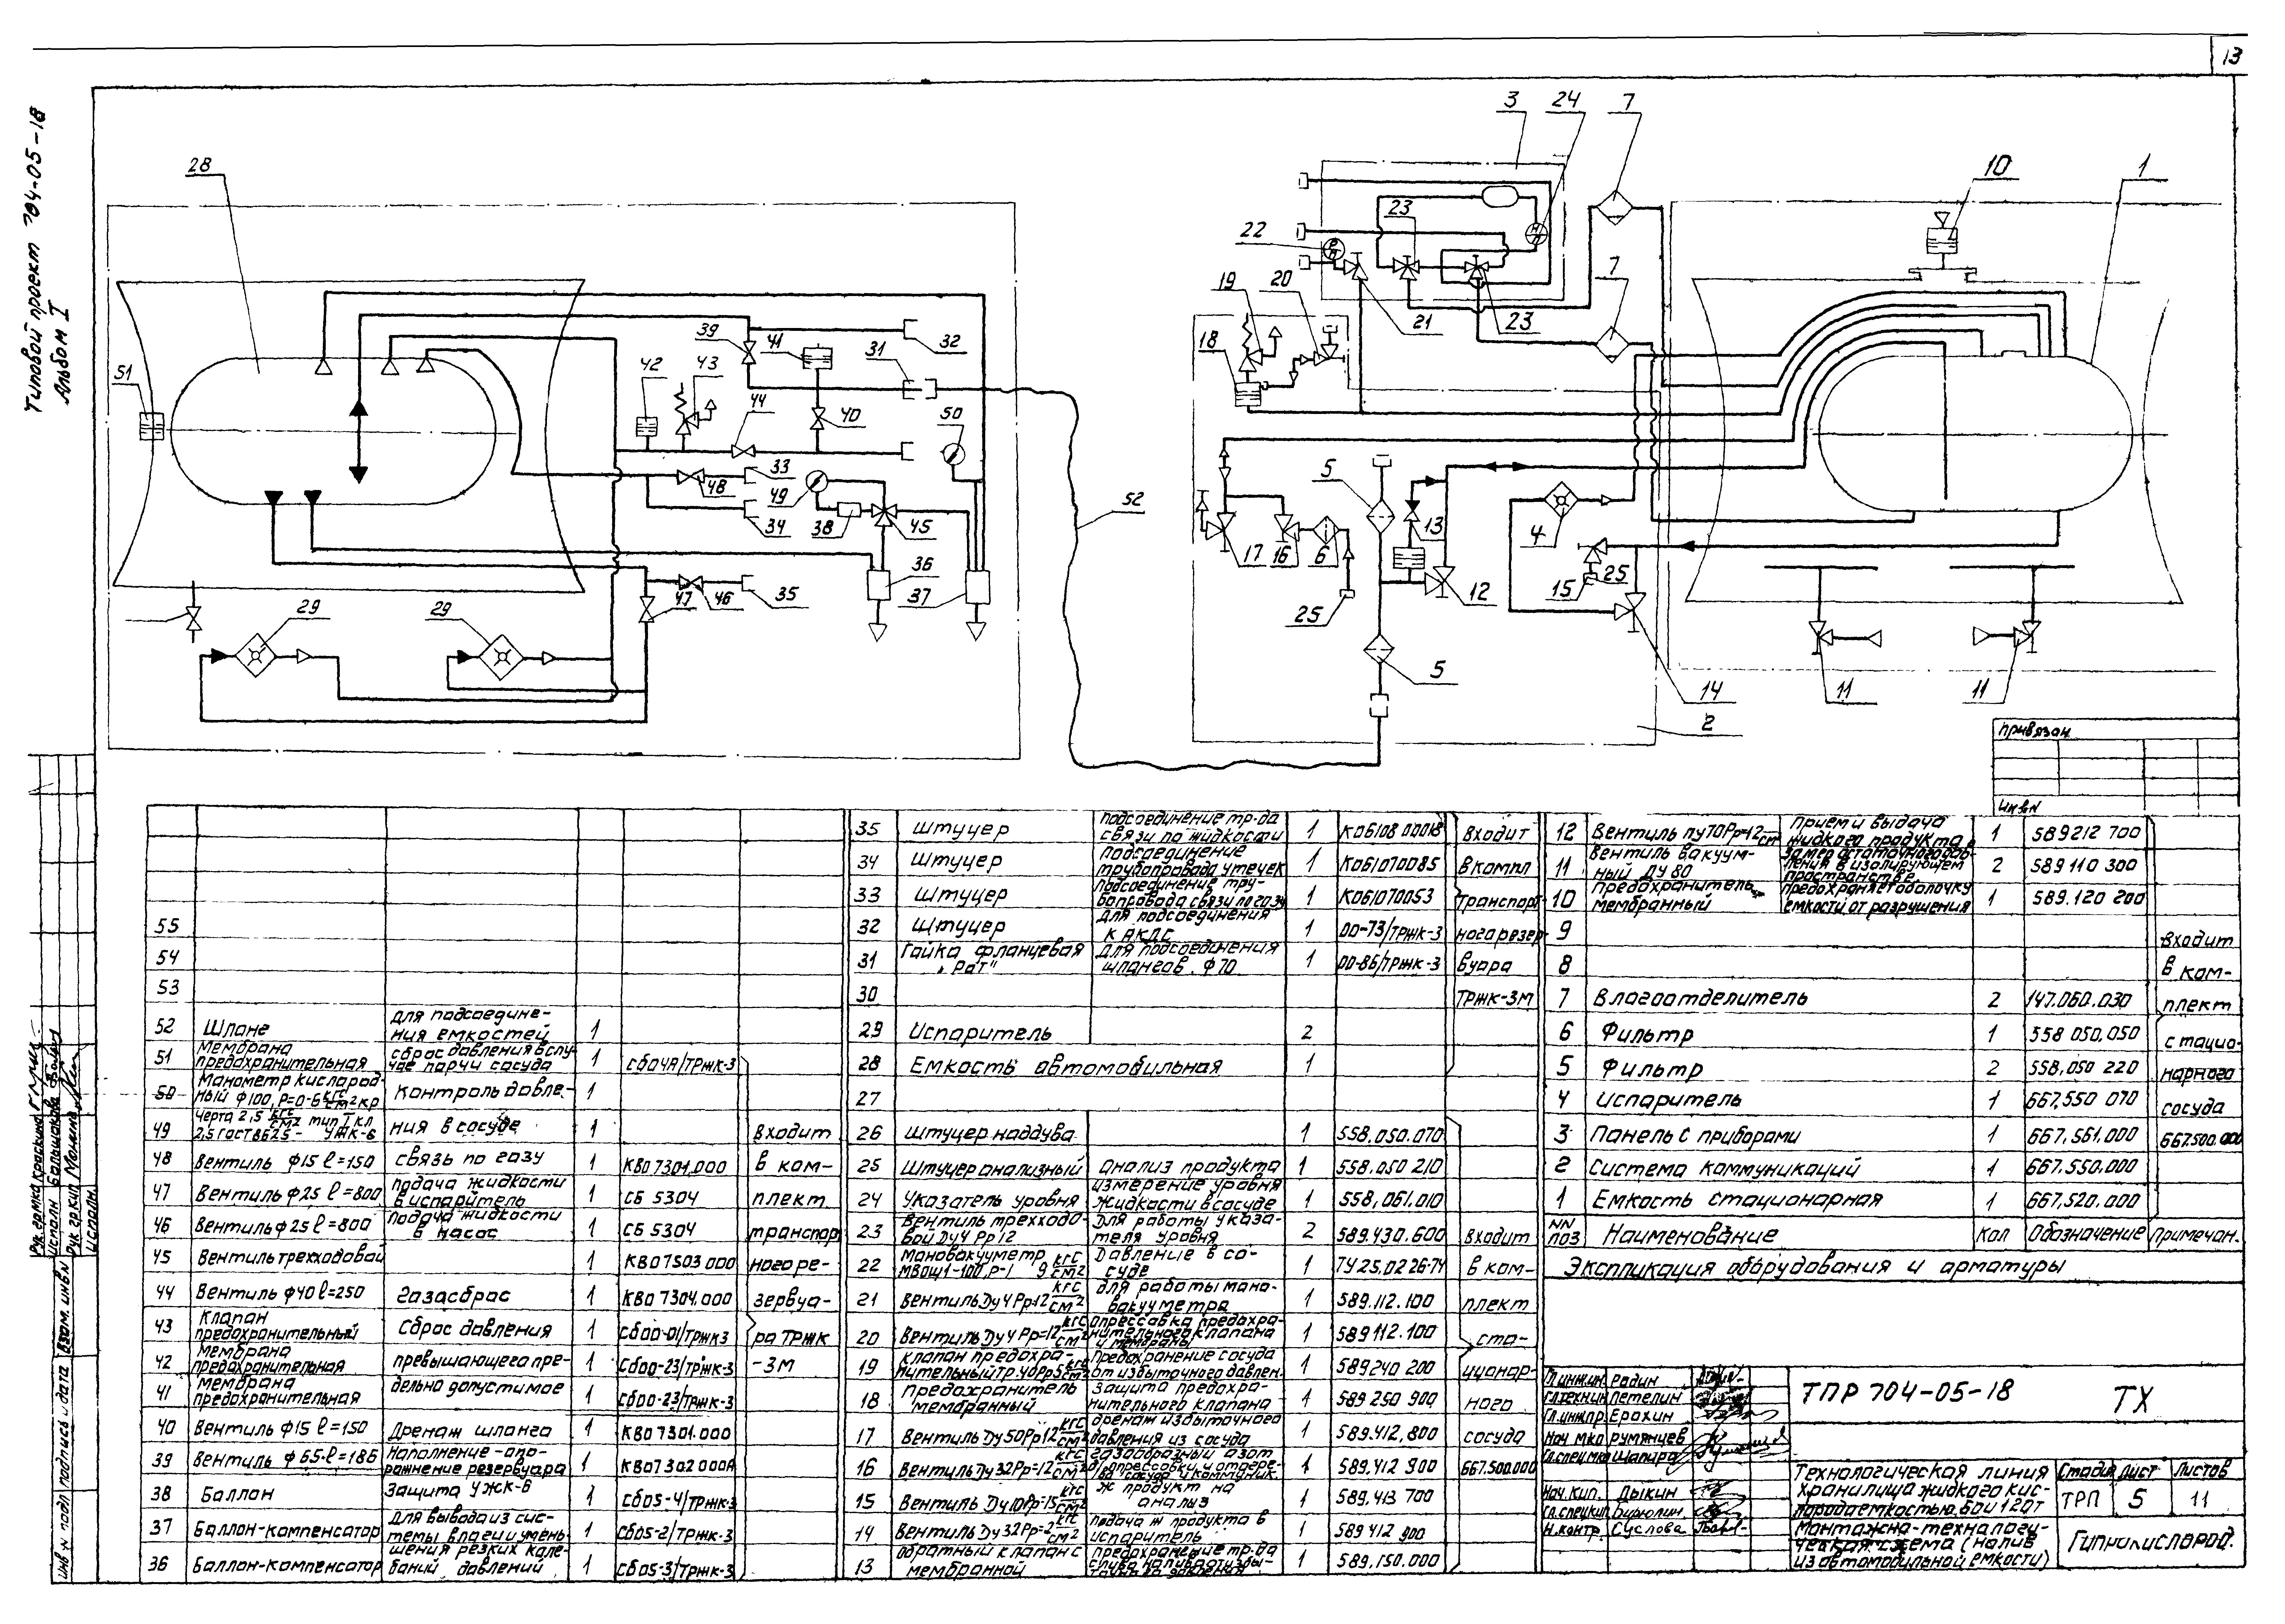 13
Типовой проект 704-05-18
Альбом I
28
51
29
29
39
41
42
43
44
40
31
32
50
33
48
49
34
38
45
36
37
47
46
35
52
3
24
7
10
1
22
23
19
20
21
23
7
18
5
13
4
17
16
6
12
15
25
25
5
14
11
11
2
Привязан
Инв N
55
54
53
52 Шланг для подсоедине-
ния емкостей 1
51 Мембрана
предохранительная сброс давления в слу-
чае порчи сосуда 1 Сб04А/ТРЖК-3
50 Манометр кислород-
ный ф100, Р=0-6 кгс/см² кр Контроль давле- 1
49 черта 2,5 кгс/см² тип I кл
2,5 гост 8625- УЖК-6 ния в сосуде 1 входит
48 Вентиль ф15 l=150 связь по газу 1 КВ07301.000 в ком-
47 Вентиль ф25 l=800 подача жидкости
в испаритель 1 СБ 5304 плект
46 Вентиль ф25 l=800 Подача жидкости
в насос 1 СБ 5304 транспор
45 Вентиль трехходовой 1 КВ07503 000 ного ре-
44 Вентиль ф40 l=250 Газасброс 1 КВ07304.000 зервуа-
43 Клапан
предохранительный Сброс давления 1 Сб00-01/ТРЖК3 ра ТРЖК
42 мембрана
предохранительная превышающего пре- 1 Сб00-23/ТРЖК-3 -3М
41 мембрана
предохранительная дельно допустимое 1 Сб00-23/ТРЖК-3
40 Вентиль ф15 l=150 Дренаж шланга 1 КВ07301.000
39 Вентиль ф65 l=186 Наполнение-опо-
рожнение резервуара 1 КВ07302000А
38 Баллон Защита УЖК-6 1 Сб05-4/ТРЖК-3
37 Баллон-компенсатор для вывода из сис-
темы влаги и умень- 1 Сб05-2/ТРЖК-3
36 Баллон-компенсатор шения резких коле-
баний давлений 1 Сб05-3/ТРЖК-3
35 Штуцер подсоединение тр-да
связи по жидкости 1 К06108 00018 входит
34 Штуцер подсоединение
трубопровода утечек 1 К061070085 в компл
33 Штуцер подсоединение тру-
бопровода связи по газу 1 К061070053 транспорт
32 Штуцер для подсоединения
к АКДС 1 00-73/ТРЖК-3 ного резер
31 Гайка фланцевая
„Рот" для подсоединения
шлангов ф70 1 00-86/ТРЖК-3 вуара
30 ТРЖК-3М
29 Испаритель 2
28 Емкость автомобильная 1
27
26 Штуцер наддува 1 558.050.070
25 Штуцер анализный анализ продукта 1 558.050 210
24 Указатель уровня измерение уровня
жидкости в сосуде 1 558.061.010
23 Вентиль трехходо-
вой Ду4 Рр12 Для работы указа-
теля уровня 2 589.430.600 входит
22 Мановакууметр
МВОШ1-100, Р-1 9 кгс/см² Давление в со-
суде 1 ТУ25.02 26-74 в ком-
21 Вентиль Ду4 Рр=12 кгс/см² для работы мано-
вакууметра 1 589.112.100 плект
20 Вентиль Ду4 Рр=12 кгс/см² опрессовка предохра-
нительного клапана
и мембраны 1 589 112.100 ста-
19 клапан предохра-
нительный тр.40 Рр5 кгс/см² Предохранение сосуда
от избыточного давлен. 1 589240 200 ционар-
18 Предохранитель
мембранный Защита предохра-
нительного клапана 1 589 250 900 ного
17 Вентиль Ду50 Рр12 кгс/см² дренаж избыточного
давления из сосуда 1 589.412,800 сосуда
16 Вентиль Ду32 Рр=12 кгс/см² газообразный азот 1 589.412 900 667.500.000
15 Вентиль Ду10 Рр=15 кгс/см² ж продукт на
анализ 1 589.413 700
14 Вентиль Ду32 Рр=2 кгс/см² подача ж продукта в
испаритель 1 589 412 900
13 обратный клапан с
мембранной предохранение тр-да 1 589.150.000
12 Вентиль Ду70 Рр=12 см Прием и выдача
жидкого продукта 1 589212 700
11 Вентиль вакуум-
ный ДУ 80 замер остаточного дав-
ления в изолирующем
пространстве 2 589 110 300
10 Предохранитель
мембранный предохраняет оболочку
емкости от разрушения 1 589.120 200
9 входит
8 в ком-
7 Влагоотделитель 2 147.060.030 плект
6 Фильтр 1 558 050,050 стацио-
5 Фильтр 2 558,050 220 нарного
4 Испаритель 1 667,550 070 сосуда
3 Панель с приборами 1 667,561.000 667.500.000
2 Система коммуникаций 1 667.550.000
1 Емкость стационарная 1 667,520.000
NN
поз Наименование Кол Обозначение Примечан.
Экспликация оборудования и арматуры
Гл.инж.ин Родин
Гл.технин Петелин
Гл.инж.пр. Ерохин
Нач мко Румянцев
Гл.спец.мко Шапиро
Нач. кип. Дыкин
Гл.спец.кип
Н.контр. Суслова
ТПР 704-05-18 ТХ
Технологическая линия
хранилища жидкого кис-
лорода емкостью 60 и 120т
Стадия Лист Листов
ТРП 5 11
Монтажно-технологи-
ческая схема (налив
из автомобильной емкости)
Гипрокислород.
Рук. гр мко Краскина
Исполн Большакова
Рук гр кип
Исполн.
Взам. инв N
Подпись и дата
Инв N подл